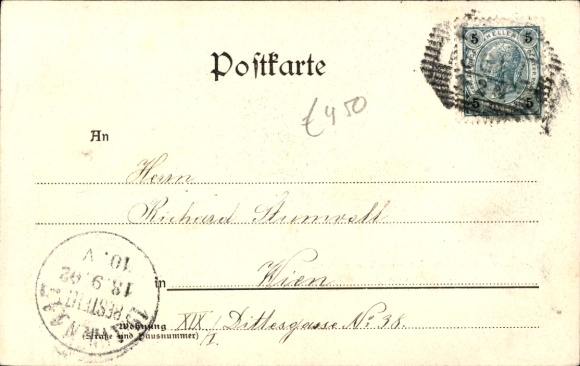 Postkarte
£ 450
An
Herrn
Richard
in Wien
Wohnung XIX/1. Dittesgasse No 38.
(Straße und Hausnummer)
WIEN
BESTELLT
18.9.02
10.V
5 5
5 5